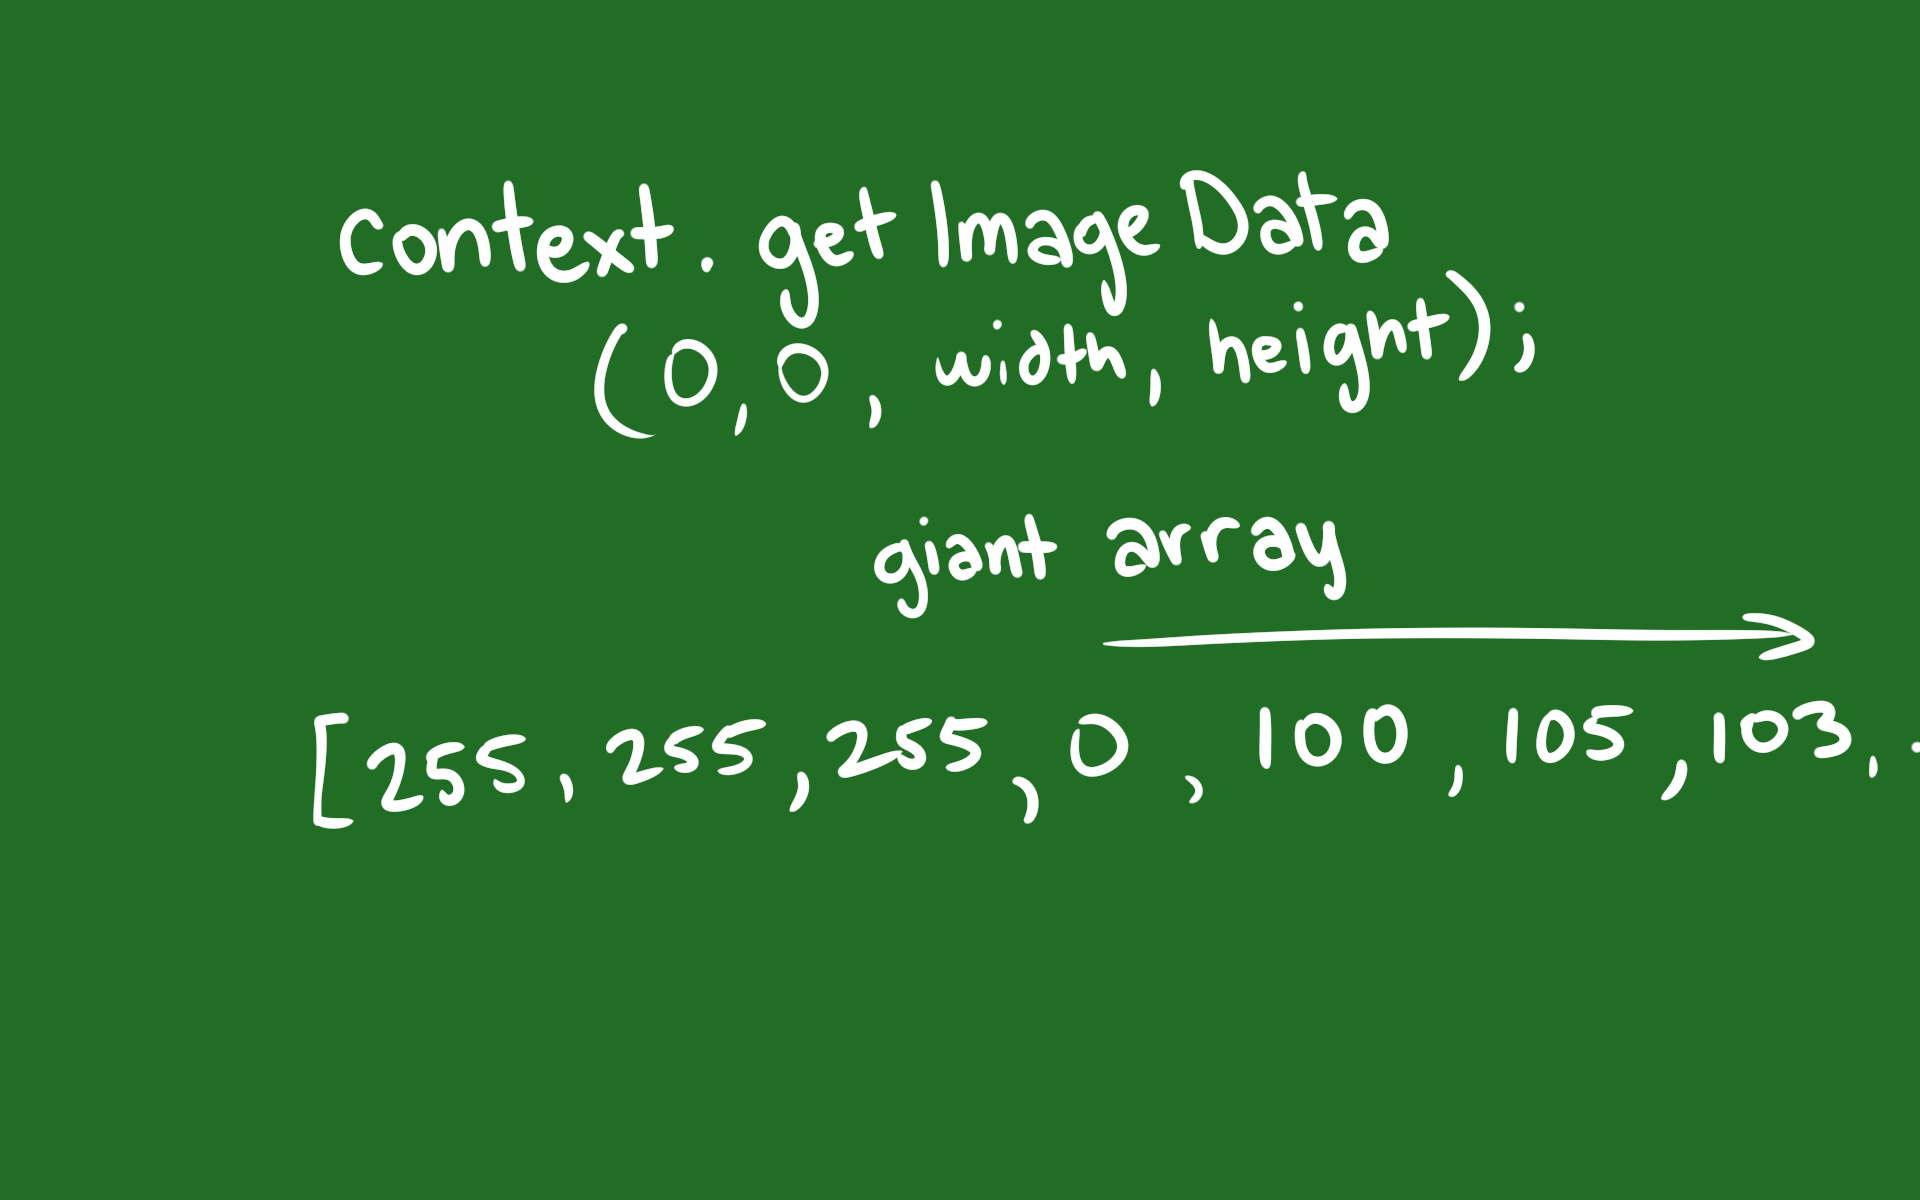 context. get Image Data
(0,0, width, height);
giant array
[255, 255, 255, 0, 100, 105, 103, .